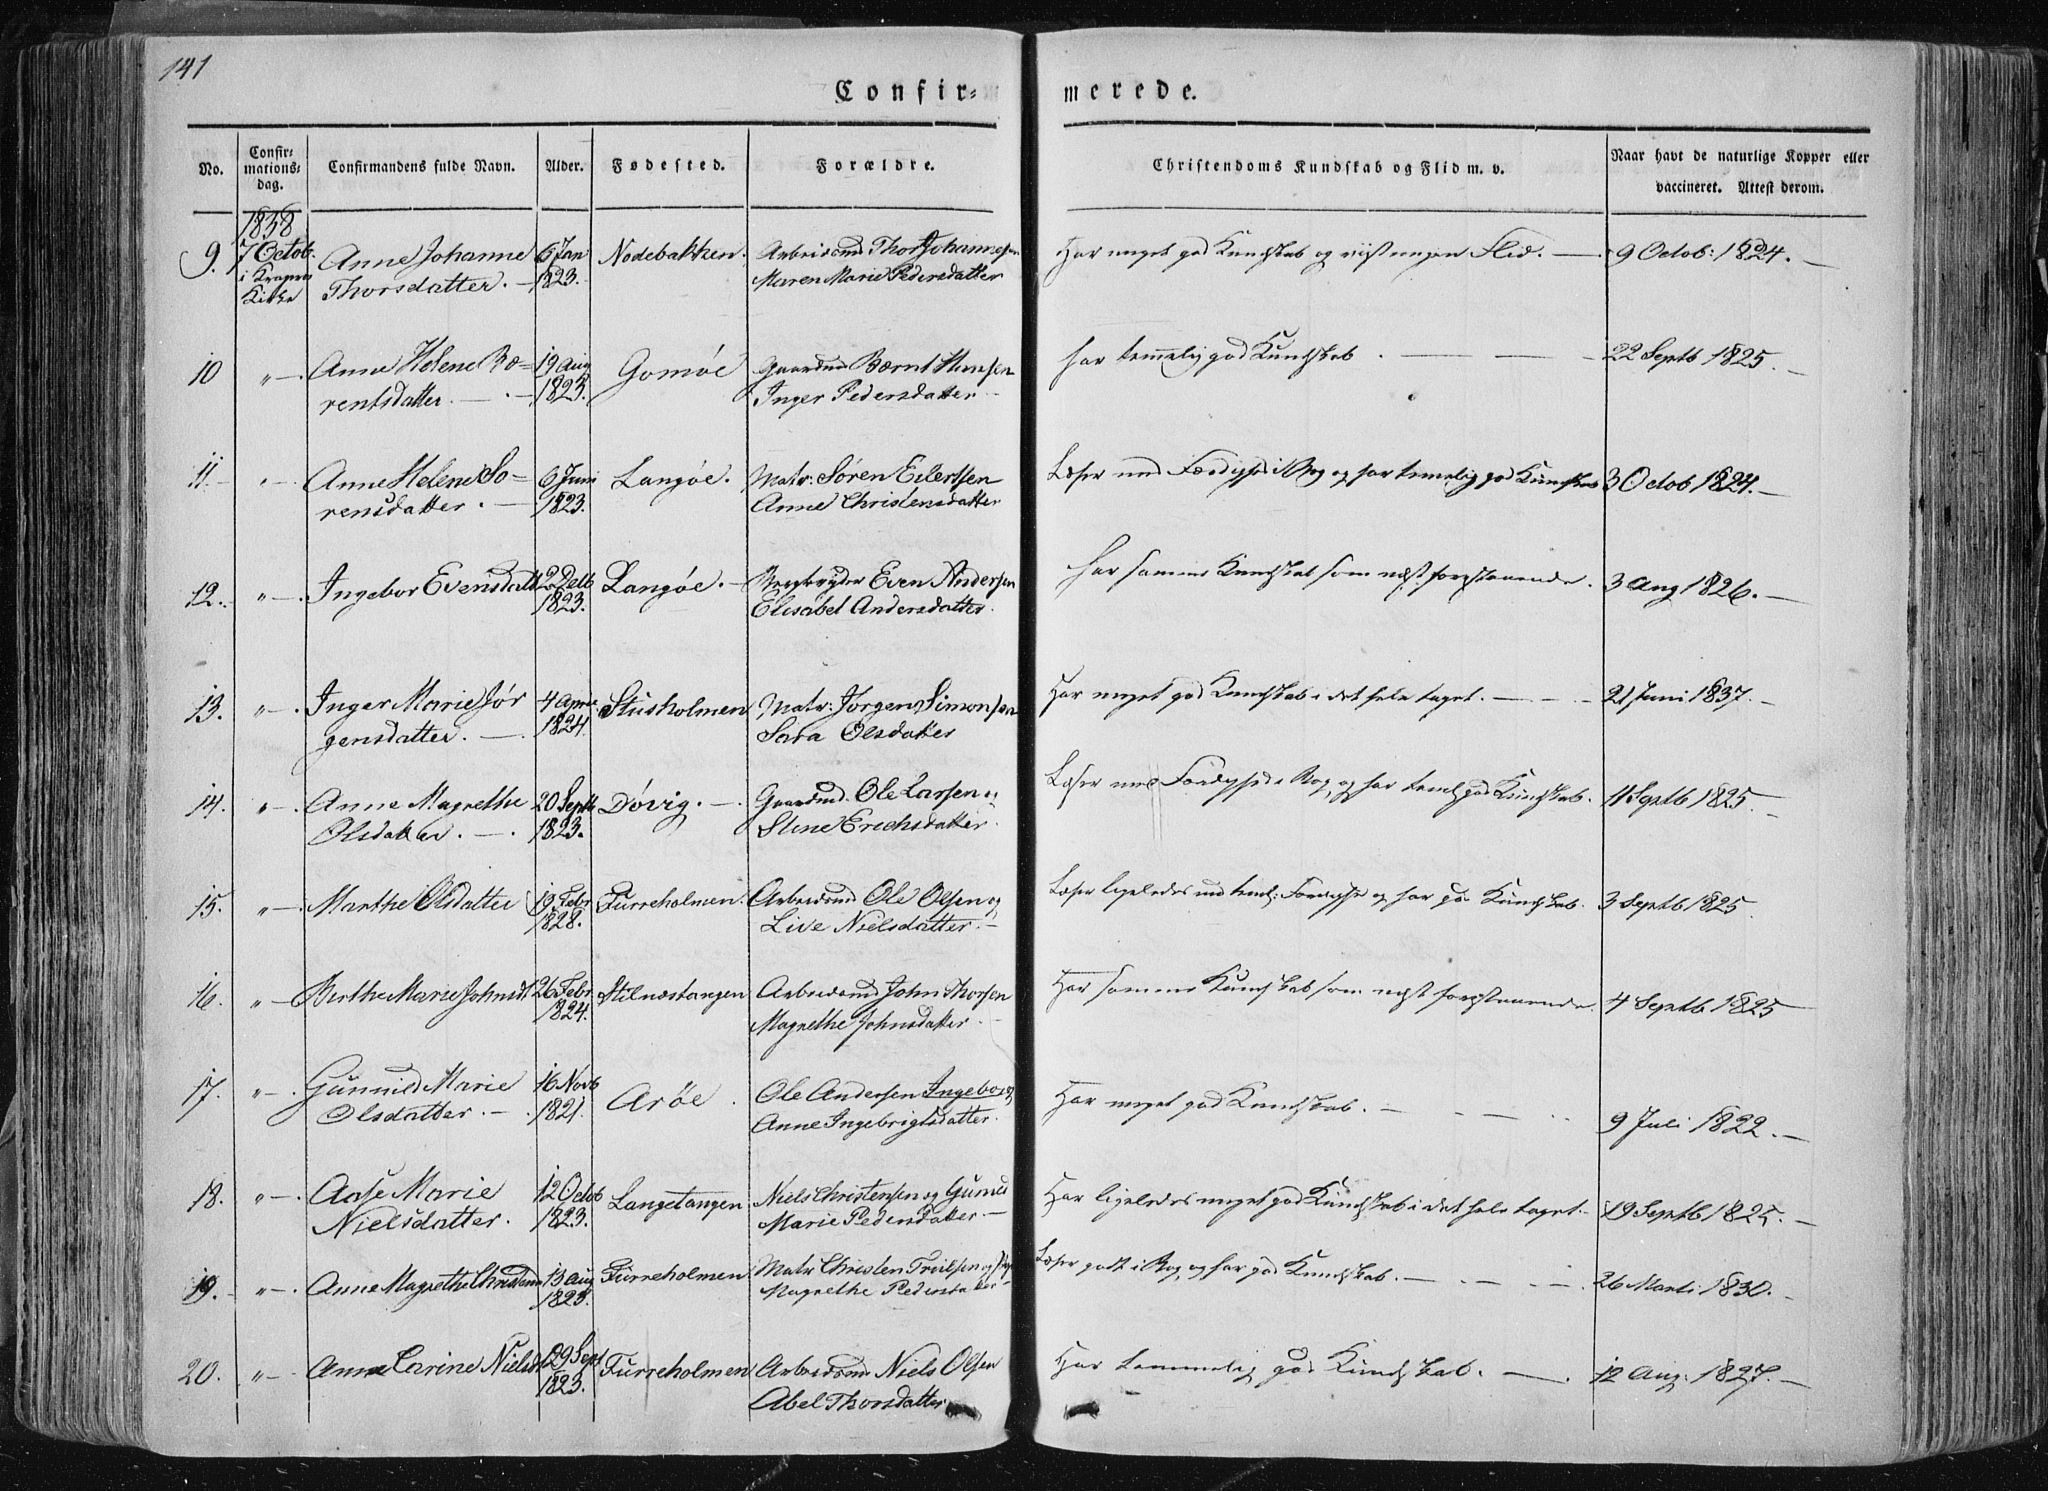 141
Confir=
merede.
No.
Confir-
mations-
dag.
Confirmandens fulde Navn.
Alder.
Fødested.
Forældre.
Christendoms Kundskab og Flid m. v.
Naar havt de naturlige Kopper eller
vaccineret. Attest derom.
1838
9. 7 Octob. Anne Johanne 6 Jan Nodebakken. Arbeidsmd Thor Johannesen Har meget god Kundskab og viist megen Flid. — 9 Octob: 1824. —
i Kragerø Thorsdatter. — 1823. Maren Marie Pedersdatter
Kirke
10 " —. Anne Helene Bæ= 19 Aug Gomøe Gaardmd Bærnt Hansen har temmelig god Kundskab. — — — 22 Septb 1825. —
rentsdatter. — . — 1823. Inger Pedersdatter —
11 " —. Anne Helene Sö= 6 Juni Langøe. Matr: Søren Eilertsen Læser med Færdighed i Bog og har temelig god Kundskab 3 Octob 1824. —
rensdatter. — 1823. Anne Christensdatter
12. " —. Ingebor Evensdatt 2 Delb Langøe. — Bergbryder Even Andersen har samme Kundskab som næst forestaaende. 3 Aug 1826. —
1823. Elisabet Andersdatter.
13. " —. Inger Marie Jør 4 April Stusholmen Matr: Jørgen Simonsen Har meget god Kundskab i det hele taget. — — - 21 Juni 1837. —
gensdatter. —. 1824. Sara Olsdatter
14. " —. Anne Magrethe 20 Septb Døvig. —. Gaardmd. Ole Larsen og Læser med Færdighed i Bog, og har teml. god Kundskab. 11 Septb 1825. —
Olsdatter. —. 1823. Stine Erichsdatter
15. " —. Marthe Olsdatter 19 Febr Furreholmen. Arbeidsmd Ole Olsen og Læser ligeledes med teml: Færdighed og har god Kundskab. 3 Septb 1825.
1828. Live Nielsdatter. —
16. " — Birthe Marie Johnsdt 26 Febr. Stilnestangen Arbeidsmd John Thorsen Har samme Kundskab som næst forestaaende. 4 Septb 1825
1824. Magrethe Johnsdatter. —
17. " —. Gunnild Marie 16 Novb Arøe. Ole Andersen Ingeborg Har meget god Kundskab. — - — .. 9 Juli 1822. —
Olsdatter. — . 1821. Anne Ingebrigtsdatter.
18. " —. Aase Marie 12 Octob Langetangen Niels Christensen og Gunild Har ligeledes meget god Kundskab i det hele taget. — 19 Septb 1825. —
Nielsdatter. 1823. Marie Pedersdatter —
19. " —. Anne Magrethe Christensd 13 Aug Furreholmen. Matr Christen Truilsen og Læser godt i Bog, og har god Kundskab. — - — - 26 Marti 1830. —
1823. Magrethe Pedersdatter —
20. " —. Anne Carine Nielsdt 29 Sept Furreholmen Arbeidsmd Niels Olsen Har temmelig god Kundskab. — —. 12 Aug: 1827. —
1823. Abel Thorsdatter